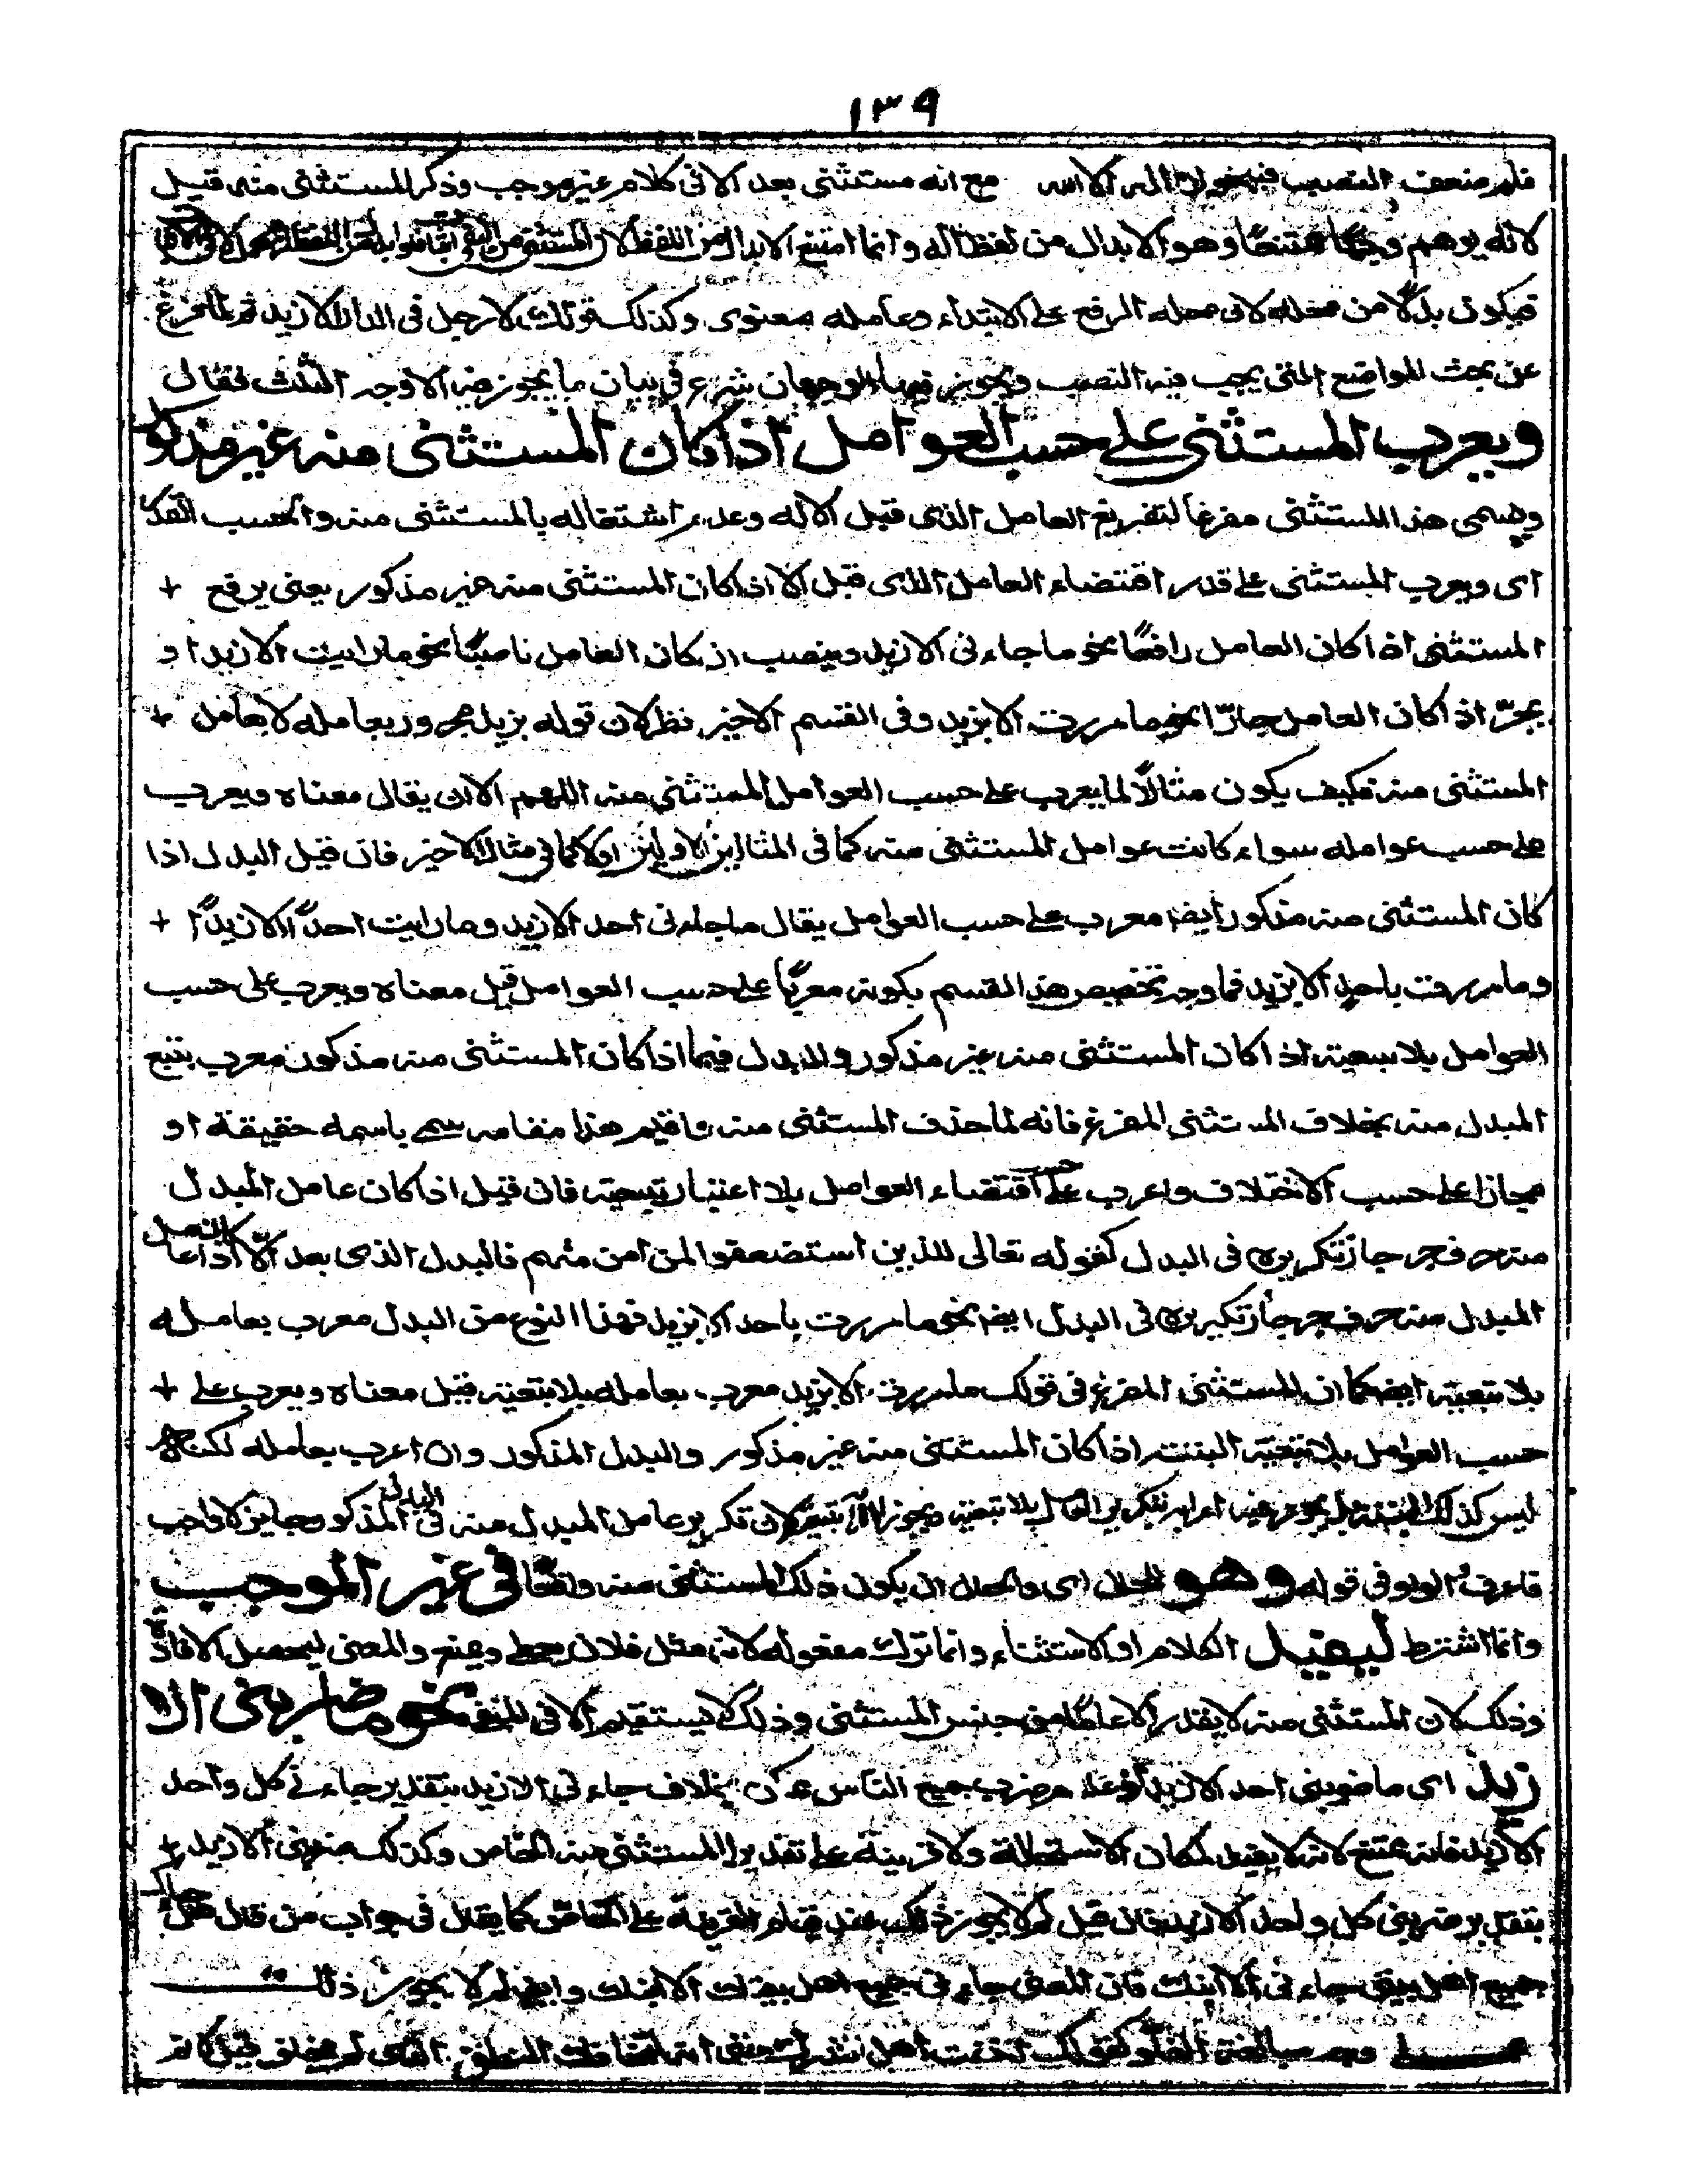 ١٣٩
فلم ضعف النصب في نحو لا اله الا الله مع انه مستثنى بعد الا في كلام غير موجب وذكر المستثنى منه قيل
لانه يوهم وجها ممتنعا وهو الابدال من لفظ اله وانما امتنع الابدال من اللفظ لان المستثنى من النفي
فيكون بدلا من محله لان محله الرفع على الابتداء وعامله معنوى وكذلك قولك لا رجل فى الدار الا زيد ثم لما فرغ
عن بحث المواضع التى يجب فيه النصب ويجوز فيها الوجهان شرع فى بيان ما يجوز فيه الاوجه الثلث فقال
ويعرب المستثنى على حسب العوامل اذا كان المستثنى منه غير مذكور
ويسمى هذا المستثنى مفرغا لتفريغ العامل الذى قبل الا له وعدم اشتغاله بالمستثنى منه والحسب القدر
اى ويعرب المستثنى على قدر اقتضاء العامل الذى قبل الا اذا كان المستثنى منه غير مذكور يعنى يرفع +
المستثنى اذا كان العامل رافعًا نحو ما جاءنى الا زيد وينصب ان كان العامل ناصبًا نحو ما رايت الا زيدا و
يجرّ اذا كان العامل جارّا نحو ما مررت الا بزيد وفى القسم الاخير نظر لان قوله بزيد مجرور بعامله لا بعامل +
المستثنى منه فكيف يكون مثالًا لما يعرب على حسب العوامل المستثنى منه اللهم الا ان يقال معناه ويعرب
على حسب عوامله سواء كانت عوامل المستثنى منه كما فى المثالين الاولين اولا كما فى مثال الاخير فان قيل البدل اذا
كان المستثنى منه مذكورا ايضا معرب على حسب العوامل يقال ما جاءنى احد الا زيد وما رايت احدًا الا زيدًا +
وما مررت باحد الا بزيد فما وجه تخصيص هذا القسم بكونه معربًا على حسب العوامل قيل معناه ويعرب على حسب
العوامل بلا تبعية اذا كان المستثنى منه غير مذكور والبدل فيما اذا كان المستثنى منه مذكور معرب بتبع
المبدل منه بخلاف المستثنى المفرغ فانه لما حذف المستثنى منه واقيم هذا مقامه سمى باسمه حقيقة او
مجازا على حسب الاختلاف واعرب على حسب اقتضاء العوامل بلا اعتبار تبعية فان قيل اذا كان عامل المبدل
منه حرف جر جاز تكريره فى البدل كقوله تعالى للذين استضعفوا لمن امن منهم فالبدل الذى بعد الّا اذا كان عامل
المبدل منه حرف جر جاز تكريره فى البدل ايضا نحو ما مررت باحد الا بزيد فهذا النوع من البدل معرب بعامله
بلا تبعية ايضا كما ان المستثنى المفرغ فى قولك ما مررت الا بزيد معرب بعامله بلا تبعية قيل معناه ويعرب على +
حسب العوامل بلا تبعية البتة اذا كان المستثنى منه غير مذكور والبدل المذكور وان اعرب بعامله لكنه
ليس كذلك البتة بل يجوز فيه اعرابه بتكرير العامل بلا تبعية ويجوز تبعيته لان تكرير عامل المبدل منه فى البدل المذكور جايز لا واجب
فاعرف الواو فى قوله وهو للحال اى والحال ان يكون ذلك المستثنى منه واقعًا فى غير الموجب
وانما اشترط ليفيد الكلام او الاستثناء وانما ترك مفعوله لانه مثل فلان يعطى ويمنع والمعنى ليحصل الافادة
وذلك لان المستثنى منه لا يقدر الا عامًا من جنس المستثنى وذلك لا يستقيم الا فى المنفى نحو ما ضربنى الا
زيد اى ما ضربنى احد الا زيد بخلاف جاءنى الا زيد بتقدير جاءنى كل واحد
الا زيد فانه يمتنع لانه لا يفيد لمكان الاستحالة ولا قرينة على تقدير المستثنى منه الخاص وكذلك ضربنى الا زيد +
بتقدير ضربنى كل واحد الا زيد فان قيل لم لا يجوز ذلك عند قيام القرينة على الخاص كما يقال فى جواب من قال
جميع اهل بيتى جاءنى الا ابنك فان المعنى جاءنى جميع اهل بيتك الا ابنك وايضا لم لا يجوز ذلك